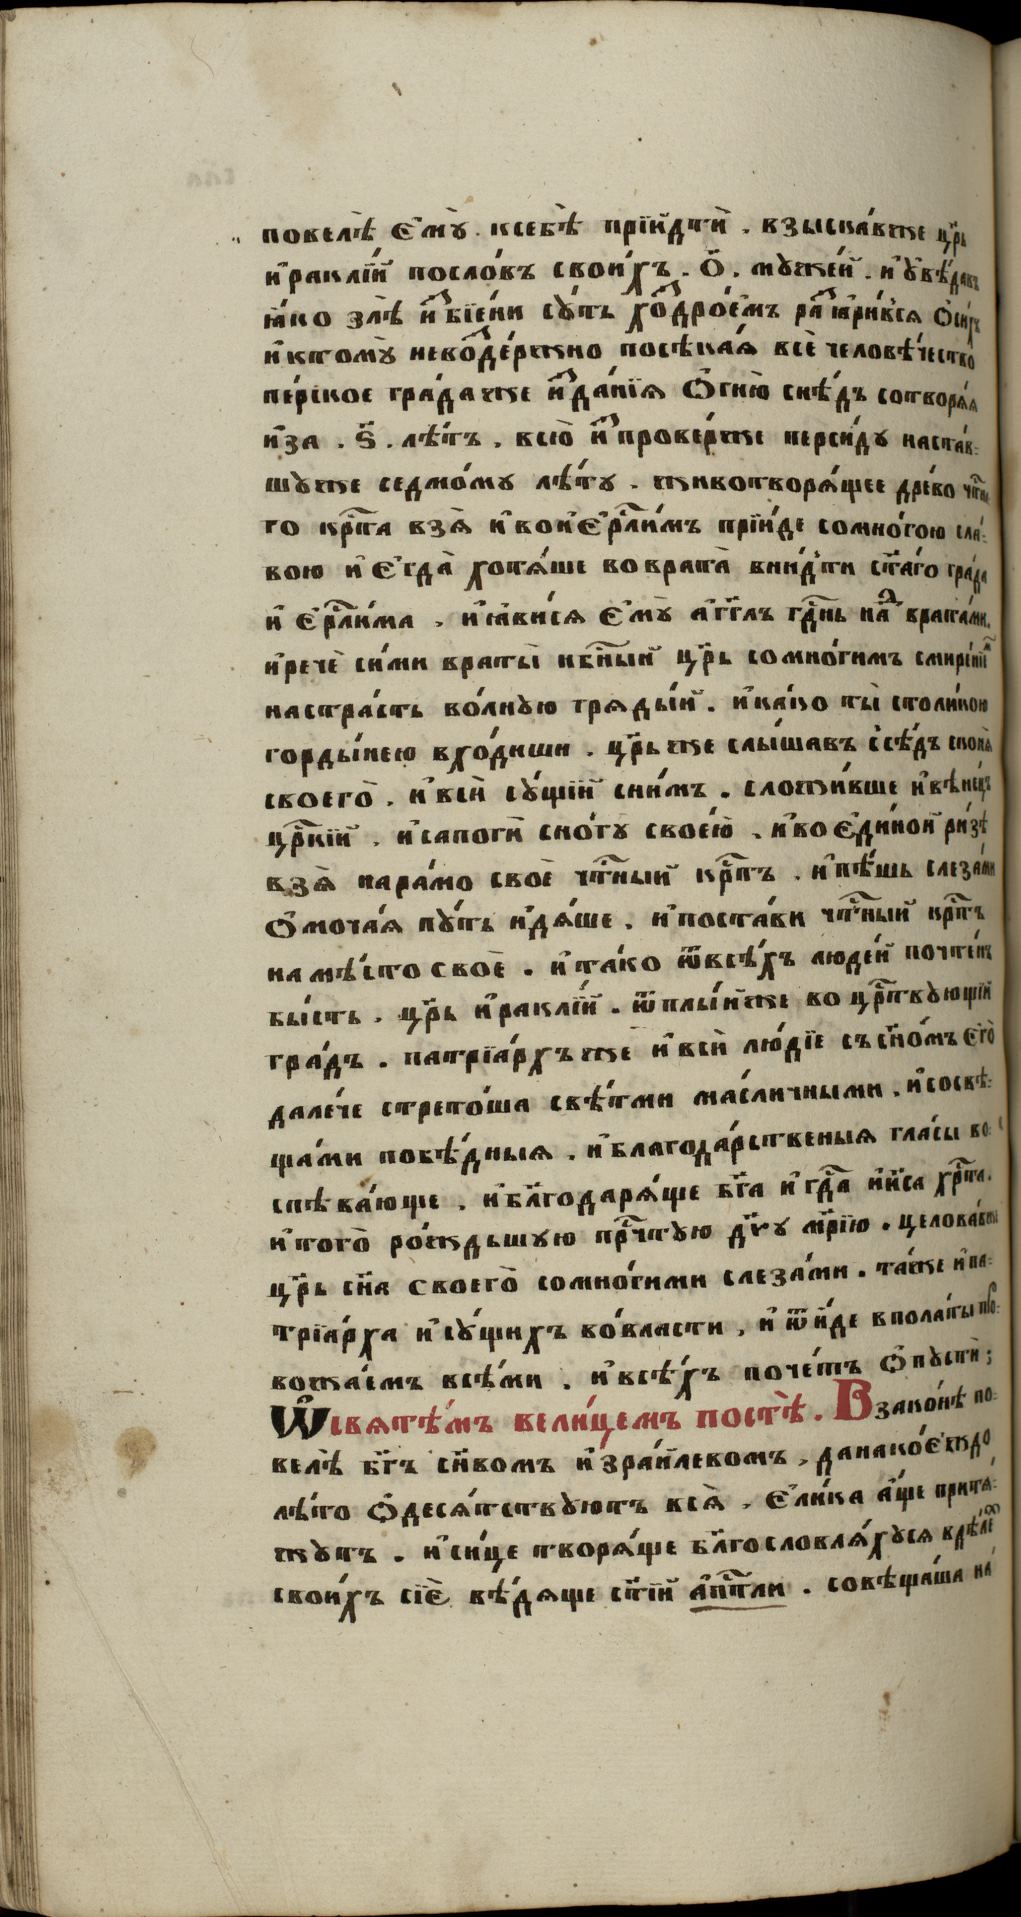 повелѣ̀ є҆мꙋ̀ . ксебѣ̀ прїи҆дтѝ . взыска́вже цр҃ь
и҆ракл́їй посло́въ свои́хъ . ѻ҃ . мꙋже́й . и҆ ᲂу҆вѣ́давъ
ꙗ҆́ко злѣ̀ и҆збїе́ни сꙋ́ть хоздрое́мъ разꙗ҆ри́вся ѻ҆си́хъ
и҆ктомꙋ̀ невоздержно посѣка́я всѐ человѣ́чество
пе́рское гра́даже и҆зда́нїя ѻ҆гню̀ снѣ́дь сотворя́я
и҆за . ѕ҃ . лѣ́тъ . всю̀ и҆спрове́рже перси́дꙋ наста́в-
шꙋже седмо́мꙋ лѣ́тꙋ . животворя́щее дре́во чтⷭ҇на
го крⷭ҇та взя̀ и҆вои҆є҆рⷭ҇ли́мъ прїи҆́де сомно́гою сла́-
вою и҆ є҆гда̀ хотя́ше во врата̀ вни́дти ст҃а́го гра́да
и҆ є҆рⷭ҇ли́ма . и҆ꙗ҆ви́ся є҆мꙋ̀ а҆́гг҃лъ гдⷭ҇нь наⷣ врата́ми .
и҆речѐ си́ми враты̀ нб҃ный цр҃ь сомно́гимъ смире́нїⷨ
настра́сть во́лнꙋю грядый . и҆ка́ко ты̀ столи́кою
горды́нею вхо́диши . цр҃ьже слы́шавъ ссѣ́дъ сконя̀
своегѡ̀ . и҆ всѝ сꙋ́щїй сни́мъ . сложи́вше и҆ вѣне́цъ
црⷭ҇кїй . и҆сапогѝ сно́гꙋ своею̀ . и҆ во є҆ди́ной ри́зѣ
взя̀ нара́мо своѐ чтⷭ҇ный крⷭ҇тъ . и҆ пѣ́шь слеза́ми
ѻ҆моча́я пꙋ́ть и҆дя́ше . и҆ поста́ви чтⷭ҇ный крⷭ҇тъ
на мѣ́сто своѐ . и҆ та́ко ѿвсѣ́хъ люде́й почте́нъ
бы́сть . цр҃ь и҆ракл́їй . ѿплы́йже во црⷭ҇твꙋющїй
гра́дъ . патрїа́рхъже и҆ всѝ лю́дїе съ сн҃омъ є҆гѡ̀
дале́че срето́ша свѣ́тми ма́сличными . и҆ сосвѣ-
ща́ми побѣ́дныя . и҆ благода́рьственыя гла́сы во-
спѣва́юще . и҆ бл҃годаря́ще бг҃а и҆ гдⷭ҇а и҆и҃са хрⷭ҇та .
и҆ тогѡ̀ ро́ждьшꙋю прчⷭ҇тꙋю дв҃ꙋ мр҃їю . целова́вже
цр҃ь сн҃а своегѡ̀ сомно́гими слеза́ми . та́же и҆ па-
трїа́рха и҆ сꙋ́щихъ во́власти . и҆ ѿи́де вполаты про-
вожа́емъ всѣ́ми . и҆ всѣ́хъ поче́тъ ѻ҆пꙋстѝ ;
Ѡ҆святѣ́мъ вели́цемъ постѣ̀ . Взако́нѣ по-
велѣ̀ бг҃ъ сн҃вомъ и҆зра́илевомъ . данако́є҆ждо
лѣ́то ѻ҆деся́тствꙋютъ вся̀ . є҆ли́ка а҆́ще притя́-
жꙋтъ . и҆ си́це творя́ще бл҃гословля́хꙋся вдѣ́леⷯ
свои́хъ сїѐ вѣ́дяще ст҃їй а҆пⷭ҇тли . совѣща́ша на